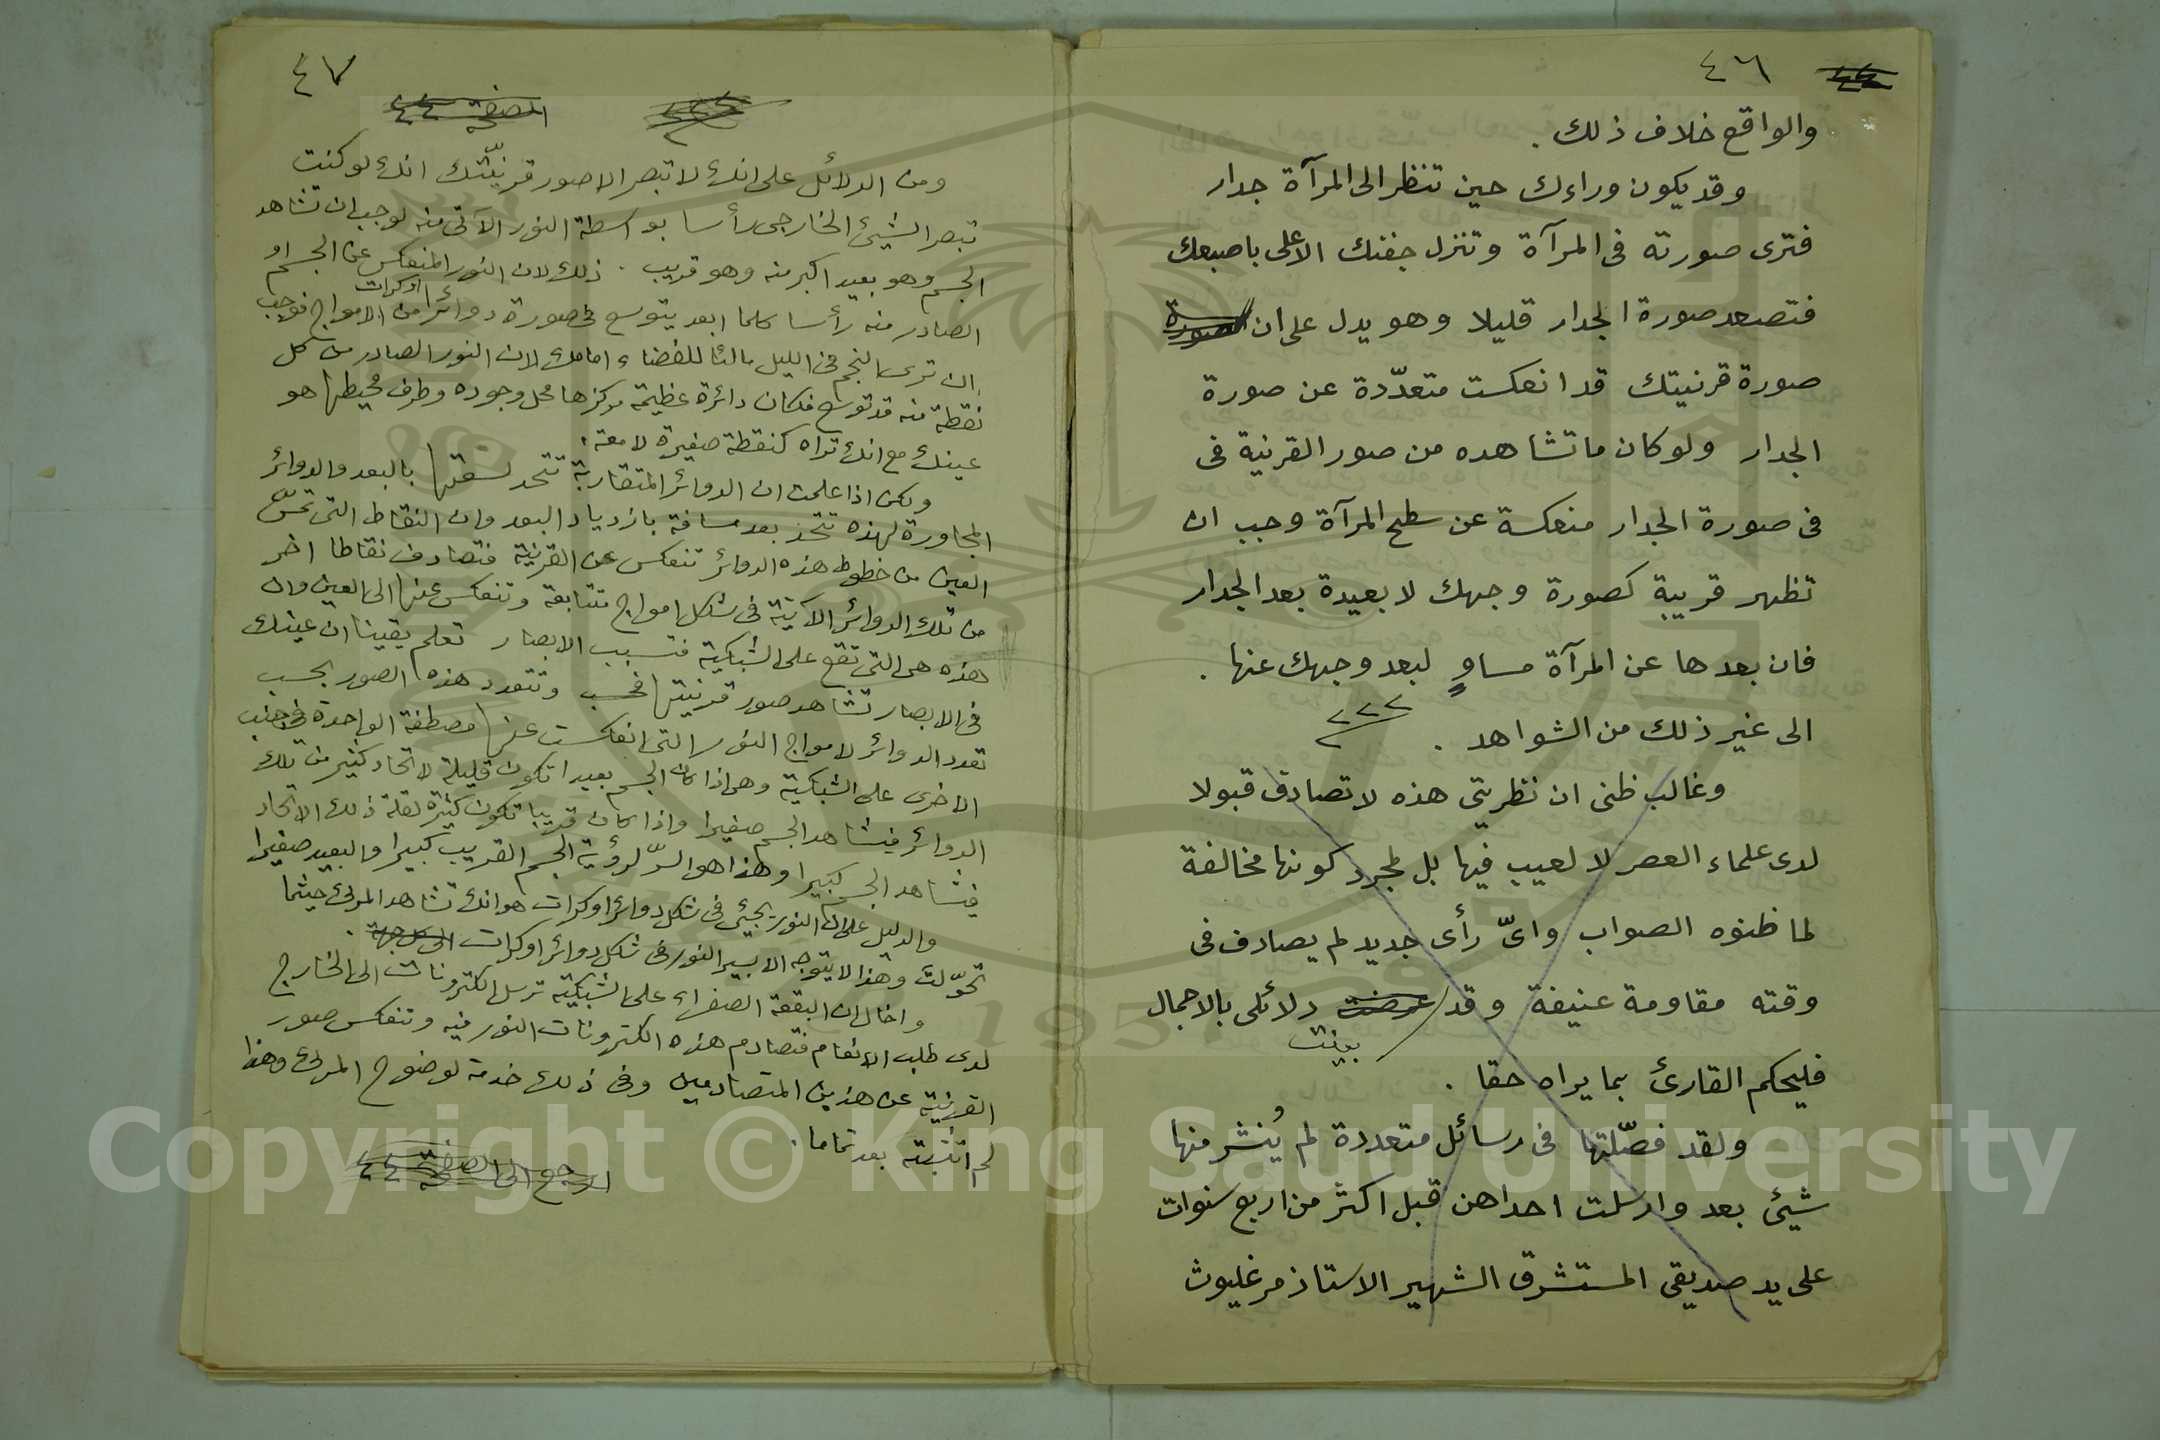 ٤٦
والواقع خلاف ذلك .
وقد يكون وراءك حين تنظر الى المرآة جدار
فترى صورته فى المرآة وتنزل جفنك الاعلى باصبعك
فتصعد صورة الجدار قليلا وهو يدل على ان صورة
صورة قرنيتك قد انعكست متعدّدة عن صورة
الجدار ولو كان ما تشاهده من صور القرنية فى
فى صورة الجدار منعكسة عن سطح المرآة وجب ان
تظهر قريبة كصورة وجهك لا بعيدة بعد الجدار
فان بعدها عن المرآة مساوٍ لبعد وجهك عنها .
الى غير ذلك من الشواهد .
وغالب ظنى ان نظريتى هذه لا تصادق قبولا
لدى علماء العصر لا لعيب فيها بل لمجرد كونها مخالفة
لما ظنوه الصواب واىّ رأى جديد لم يصادف فى
وقته مقاومة عنيفة وقد عرضت دلائلى بالاجمال
بينت
فليحكم القارئ بما يراه حقا .
ولقد فصّلتها فى رسائل متعددة لم يُنشر منها
شيئ بعد وارسلت احداهن قبل اكثر من اربع سنوات
على يد صديقى المستشرق الشهير الاستاذ مرغليوث
٤٧
الصفحة ٤٤
ومن الدلائل على انك لا تبصر الا صور قرنيّتك انك لو كنت
تبصر الشيئ الخارجى رأسا بواسطة النور الآتى منه لوجب ان تشاهد
الجسم وهو بعيد اكبر منه وهو قريب . ذلك لان النور المنعكس عن الجسم او
الصادر منه رأسا كلما ابعد يتوسع فى صورة دوائر من الامواج فوجب
او كرات
ان ترى النجم فى الليل مالئا للفضاء امامك لان النور الصادر من كل
نقطة منه قد توسع فكان دائرة عظيمة مركزها محل وجوده وطرف محيطها هو
عينك مع انك تراه كنقطة صغيرة لامعة .
ولكن اذا علمت ان الدوائر المتقاربة تتحد لسعتها بالبعد والدوائر
المجاورة لهذه تتحد بعد مسافة بازدياد البعد وان النقاط التى تمسّ
العين من خطوط هذه الدوائر تنعكس عن القرنية فتصادف نقاطا اخر
من تلك الدوائر الآتية فى شكل امواج متتابعة وتنعكس عنها الى العين وان
هذه هى التى تقع على الشبكية فتسبب الابصار تعلم يقينا ان عينك
فى الابصار تشاهد صور قرنيتها فحسب وتتعدد هذه الصور بحسب
تعدد الدوائر لامواج النور التى انعكست عنها مصطفة الواحدة فى جنب
الاخرى على الشبكية وهى اذا كان الجسم بعيدا تكون قليلة لاتحاد كثير من تلك
الدوائر فيشاهد الجسم صغيرا واذا كان قريبا تكون كثيرة لقلة ذلك الاتحاد
فيشاهد الجسم كبيرا وهذا هو السرّ لرؤية الجسم القريب كبيرا والبعيد صغيرا
والدليل على ان النور يجيئ فى شكل دوائر او كرات هو انك تشاهد المرئى حيثما
تحوّلت وهذا لا يتوجه الا بسير النور فى شكل دوائر او كرات الى كل جهة .
واخال ان البقعة الصفراء على الشبكية ترسل الكترونات الى الخارج
لدى طلب الانعام فتصادم هذه الكترونات النور فيه وتنعكس صور
القرنية عن هذين المتصادمين وفى ذلك خدمة لوضوح المرئى وهذا
لم اتثبته بعد تماما .
ارجع الى الصفحة ٤٤
Copyright © King Saud University